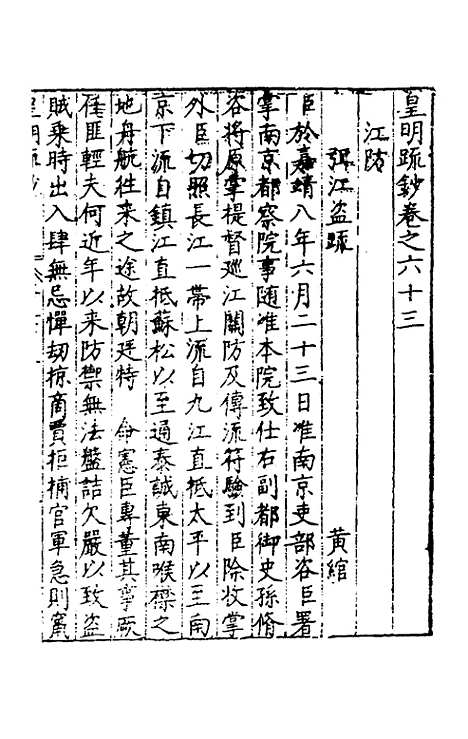 皇明疏鈔卷之六十三
江防
弭江盗疏 黄綰
臣於嘉靖八年六月二十三日准南京吏部咨臣署
掌南京都察院事随准本院致仕右副都御史孫脩
咨將原掌提督巡江關防及傳流符驗到臣除收掌
外臣切照長江一帶上流自九江直抵太平以至南
京下流自鎮江直抵蘇松以至通泰誠東南喉襟之
地舟航徃来之途故朝廷特 命憲臣專董其事厥
任匪輕夫何近年以来防禦無法盤詰欠嚴以致盗
賊乗時出入肆無忌憚刼掠商賈拒捕官軍急則竄
皇明疏鈔